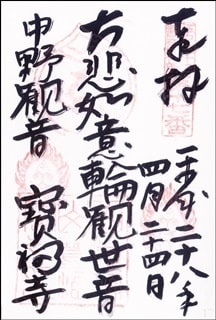 奉拝
平成二十八年
四月二十四日
大悲如意輪観世音
中野観音
寶福寺